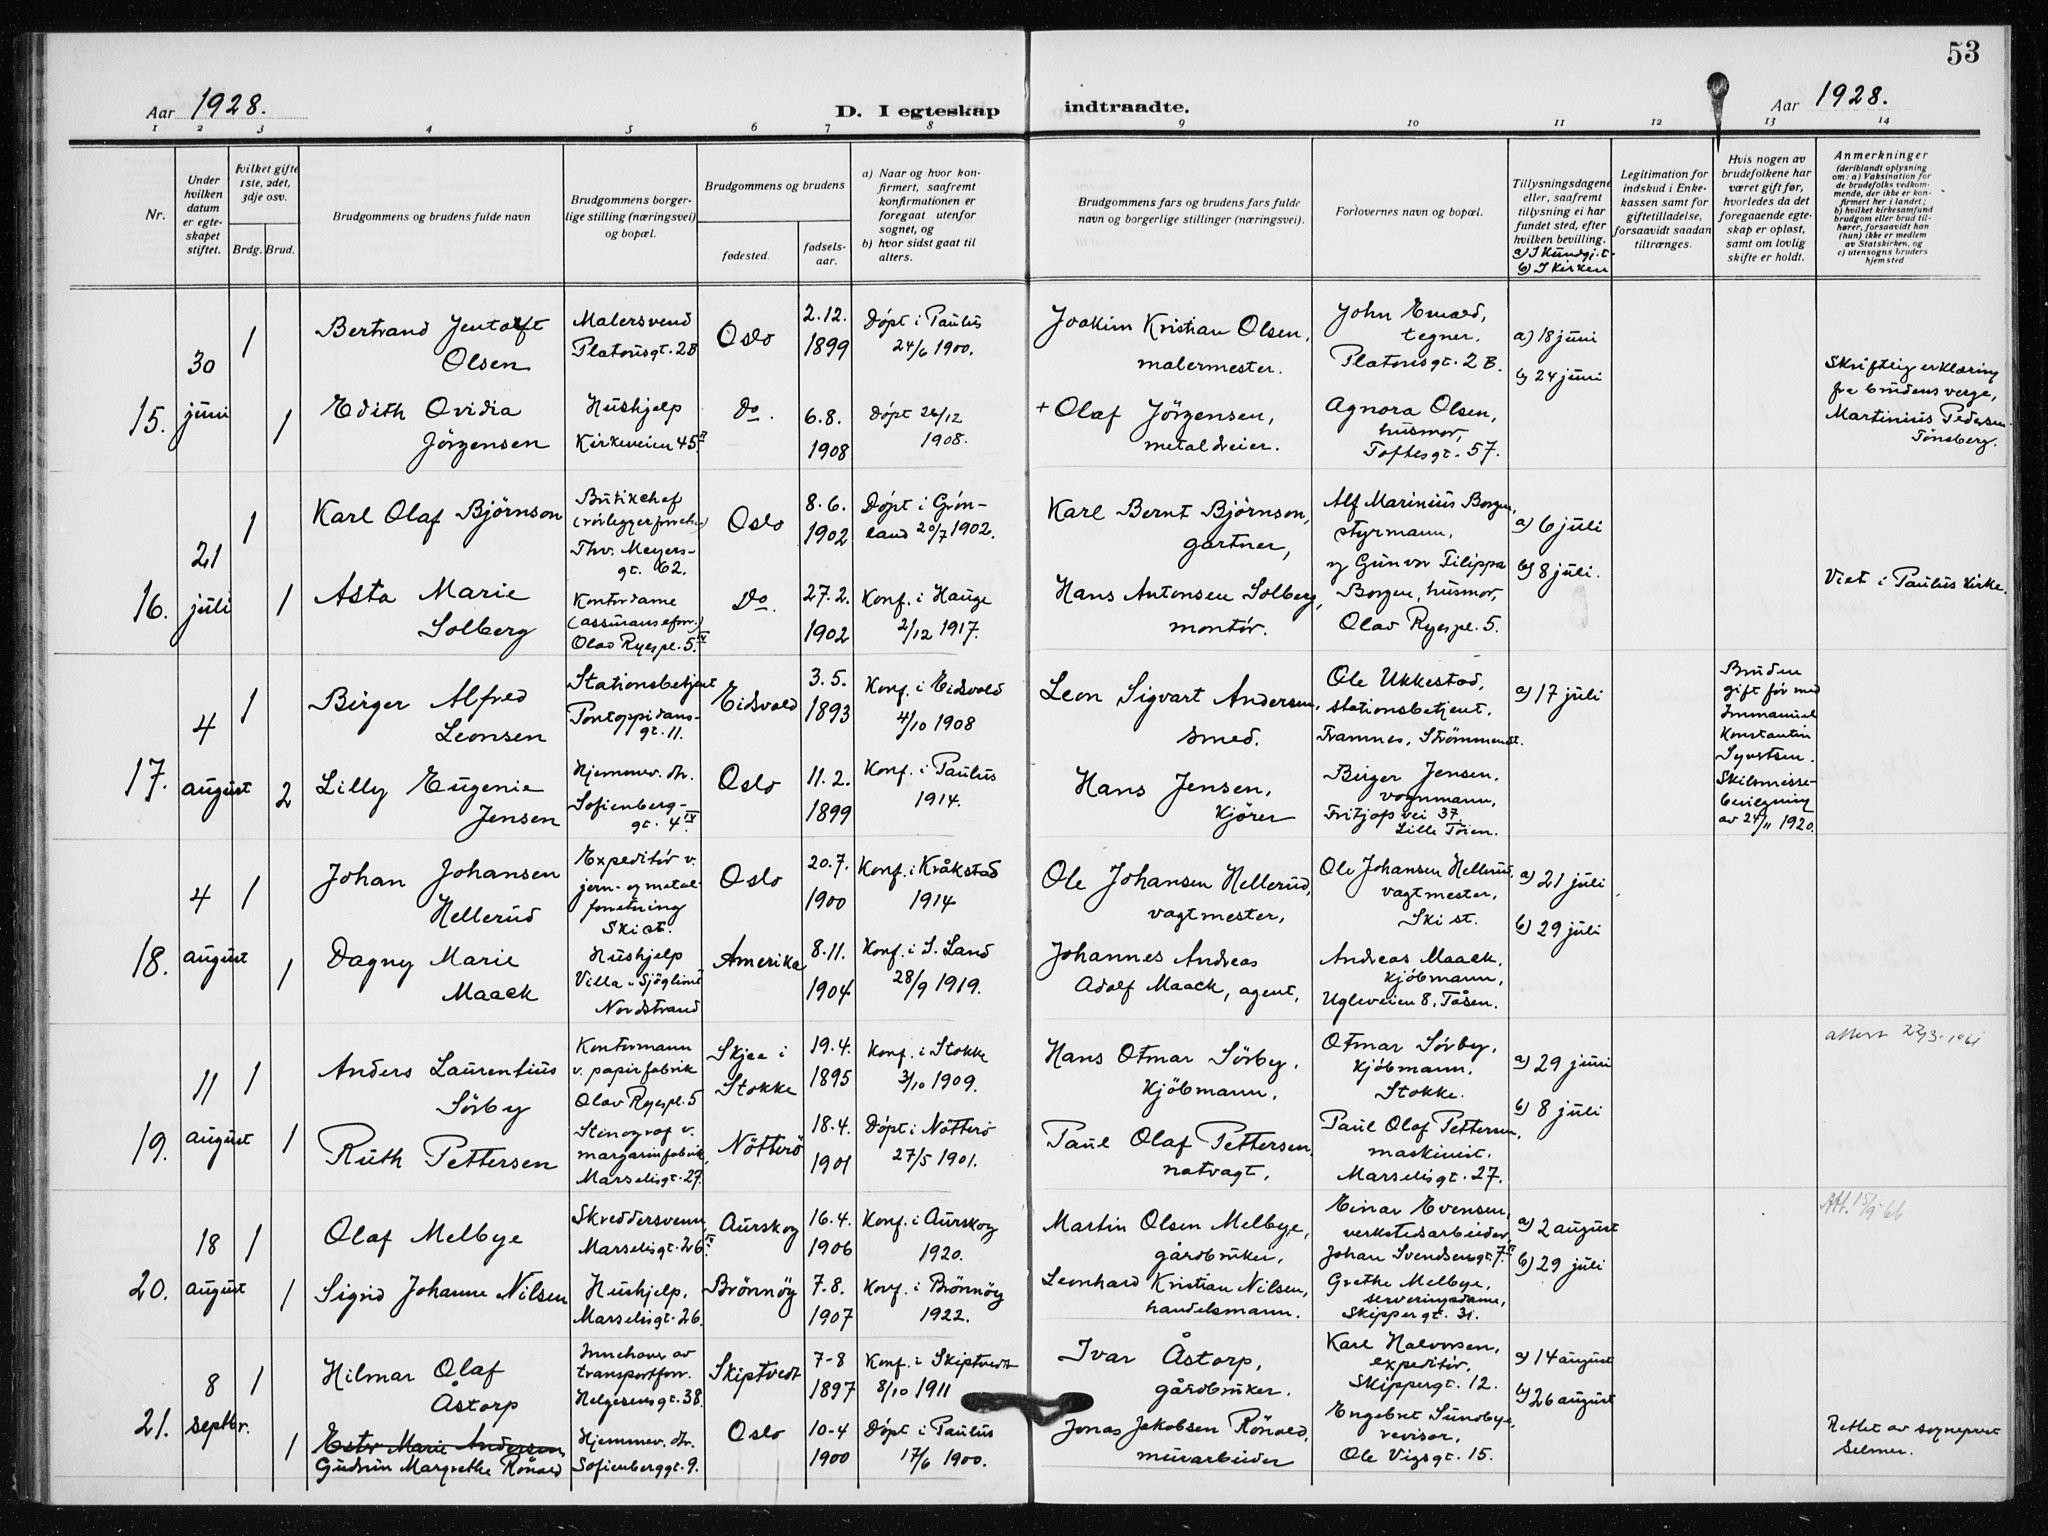 53
Aar 1928.
D. I egteskap indtraadte.
Aar 1928.
1 2 3 4 5 6 7 8 9 10 11 12 13 14
Nr.
Under hvilken datum er egteskapet stiftet.
hvilket gifte 1ste, 2det, 3dje osv.
Brdg. Brud.
Brudgommens og brudens fulde navn
Brudgommens borgerlige stilling (næringsvei) og bopæl.
Brudgommens og brudens
fødested. fødselsaar.
a) Naar og hvor konfirmert, saafremt konfirmationen er foregaat utenfor sognet, og
b) hvor sidst gaat til alters.
Brudgommens fars og brudens fars fulde navn og borgerlige stillinger (næringsvei).
Forlovernes navn og bopæl.
Tillysningsdagene eller, saafremt tillysning ei har fundet sted, efter hvilken bevilling.
a) I Kundgj.t.
b) I kirken
Legitimation for indskud i Enkekassen samt for giftetilladelse, forsaavidt saadan tiltrænges.
Hvis nogen av brudefolkene har været gift før, hvorledes da det foregaaende egteskap er opløst, samt om lovlig skifte er holdt.
Anmerkninger
(deriblandt oplysning om: a) Vaksination for de brudefolks vedkommende, der ikke er konfirmert her i landet;
b) hvilket kirkesamfund brudgom eller brud tilhører, forsaavidt han (hun) ikke er medlem av Statskirken, og
c) utensogns bruders hjemsted
15. 30 juni
1
Bertrand Jentoft Olsen
Malersvend
Platousgt. 2B
Oslo
2.12. 1899
Døpt i Paulus
24/6 1900.
Joakim Kristian Olsen,
malermester.
John Emald,
tegner.
Platousgt. 2 B.
a) 18 juni
b) 24 juni
Skriftlig erklæring
fra brudens verge,
Martinius Pedersen
Tönsberg.
1
Edith Ovidia
Jörgensen
Hushjelp
Kirkeveien 45 II
Do.
6.8. 1908
Døpt 26/12
1908.
+ Olaf Jörgensen,
metaldreier.
Agnora Olsen,
husmor,
Toftesgt. 57.
16. 21 juli
1
Karl Olaf Björnson
Butikchef
(rörleggerforretn.)
Thv. Meyers-
gt. 62.
Oslo
8.6. 1902
Døpt i Grön-
land 20/7 1902.
Karl Bernt Björnson,
gartner,
Alf Marinius Borgen,
styrmann,
a) 6 juli
b) 8 juli.
Viet i Paulus kirke.
1
Asta Marie
Solberg
Kontordame
(assuranseforr.)
Olav Ryespl. 5. IV
Do.
27.2. 1902
Konf. i Hauge
2/12 1917.
Hans Antonsen Solberg,
montör.
og Gunvor Filippa
Borgen, husmor,
Olav Ryespl. 5.
17. 4 august
1
Birger Alfred
Leonsen
Stationsbetjent
Pontoppidans-
gt. 11.
Eidsvold
3.5. 1893
Konf. i Eidsvold
4/10 1908
Leon Sigvart Andersen,
smed.
Ole Ukkestad,
stationsbetjent.
Framnes, Strömmen st.
a) 17 juli
Bruden
gift för med
Immanuel
Konstantin
Syvertsen.
Skilsmisse-
bevilgning
av 24/11 1920.
2
Lilly Eugenie
Jensen
Hjemmev. dtr.
Sofienberg-
gt. 4 IV.
Oslo
11.2. 1899
Konf. i Paulus
1914.
Hans Jensen,
kjörer
Birger Jensen,
vognmann,
Fritjofs vei 37.
Lille Töien.
18. 4 august
1
Johan Johansen
Hellerud
Expeditör v.
jern- og metal-
forretning
Ski st.
Oslo
20.7. 1900
Konf. i Kråkstad
1914
Ole Johansen Hellerud,
vagtmester,
Ole Johansen Hellerud,
vagtmester,
Ski st.
a) 21 juli
b) 29 juli
1
Dagny Marie
Maack
Hushjelp
Villa "Sjöglimt"
Nordstrand
Amerika
8.11. 1904
Konf. i S. Land
28/9 1919.
Johannes Andreas
Adolf Maack, agent,
Andreas Maack,
kjöbmann,
Ugleveien 8, Tåsen.
19. 11 august
1
Anders Laurentius
Sörby
Kontormann
v. papirfabrik
Olav Ryespl. 5
Skjee i
Stokke
19.4. 1895
Konf. i Stokke
3/10 1909.
Hans Otmar Sörby,
kjöbmann,
Otmar Sörby,
kjöbmann,
Stokke.
a) 29 juni
b) 8 juli
attest 22/3.1961
1
Ruth Pettersen
Stenograf v.
margarinfabrik,
Marselisgt. 27.
Nötterö
18.4. 1901
Døpt i Nötterö
27/5 1901.
Paul Olaf Pettersen,
natvagt,
Paul Olaf Pettersen,
maskinist.
Marselisgt. 27.
20. 18 august
1
Olaf Melbye
Skreddersvenn,
Marselisgt. 26 II.
Aurskog
16.4. 1906
Konf. i Aurskog
1920.
Martin Olsen Melbye,
gårdbruker,
Einar Evensen,
verkstedsarbeider,
Johan Svendsensgt. 7 II
a) 2 august
b) 29 juli
Att. 15/9-66
1
Sigrid Johanne Nilsen
Hushjelp,
Marselisgt. 26.
Brönnöy
7.8. 1907
Konf. i Brönnöy
1922.
Leonhard Kristian Nilsen,
handelsmann.
Grethe Melbye,
serveringsdame,
Skippergt. 31.
21. 8 septbr.
1
Hilmar Olaf
Åstorp
Innehaver av
transportforr.
Helgesensgt. 38.
Skiptvedt
7-8 1897
Konf. i Skiptvedt
8/10 1911
Ivar Åstorp,
gårdbruker.
Karl Halvorsen,
expeditör,
Skippergt. 12.
a) 14 august
b) 26 august
1
Ester Marie Andersen
Gudrun Margrethe Rönold
Hjemmev. dtr.
Sofienberggt. 9.
Oslo
10-4 1900
Døpt i Paulus
17/6 1900.
Jonas Jakobsen Rönold,
murarbeider
Engebret Sundbye,
revisor,
Ole Vigsgt. 15.
Rettet av sogneprest
Selmer.